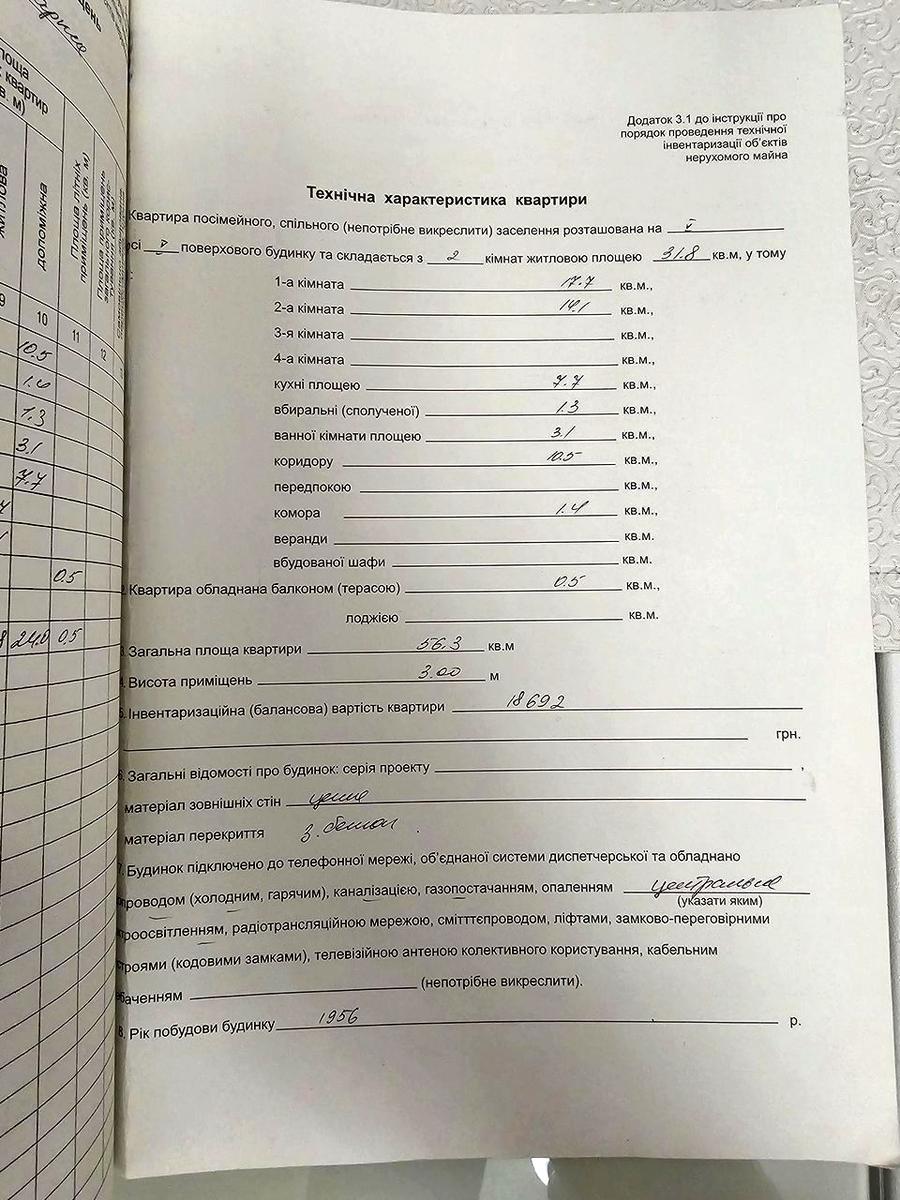 щень
площа
квартир
в. м)
житлова
допоміжна
Площа літніх
приміщень (кв. м)
9
10
11
12
10.5
1.4
1.3
3.1
7.7
0.5
24.0 0.5
Додаток 3.1 до інструкції про
порядок проведення технічної
інвентаризації об'єктів
нерухомого майна
Технічна характеристика квартири
Квартира посімейного, спільного (непотрібне викреслити) заселення розташована на V
рсі V поверхового будинку та складається з 2 кімнат житловою площею 31.8 кв.м, у тому
:
1-а кімната 17.7 кв.м.,
2-а кімната 14.1 кв.м.,
3-я кімната кв.м.,
4-а кімната кв.м.,
кухні площею 7.7 кв.м.,
вбиральні (сполученої) 1.3 кв.м.,
ванної кімнати площею 3.1 кв.м.,
коридору 10.5 кв.м.,
передпокою кв.м.,
комора 1.4 кв.м.,
веранди кв.м.
вбудованої шафи кв.м.
Квартира обладнана балконом (терасою) 0.5 кв.м.,
лоджією кв.м.
Загальна площа квартири 56.3 кв.м
Висота приміщень 3.00 м
5. Інвентаризаційна (балансова) вартість квартири 18692
грн.
6. Загальні відомості про будинок: серія проекту ,
матеріал зовнішніх стін цегла
матеріал перекриття з. бетон .
7. Будинок підключено до телефонної мережі, об'єднаної системи диспетчерської та обладнано
проводом (холодним, гарячим), каналізацією, газопостачанням, опаленням центральне
(указати яким)
троосвітленням, радіотрансляційною мережою, сміттєпроводом, ліфтами, замково-переговірними
строями (кодовими замками), телевізійною антеною колективного користування, кабельним
баченням (непотрібне викреслити).
8. Рік побудови будинку 1956 р.